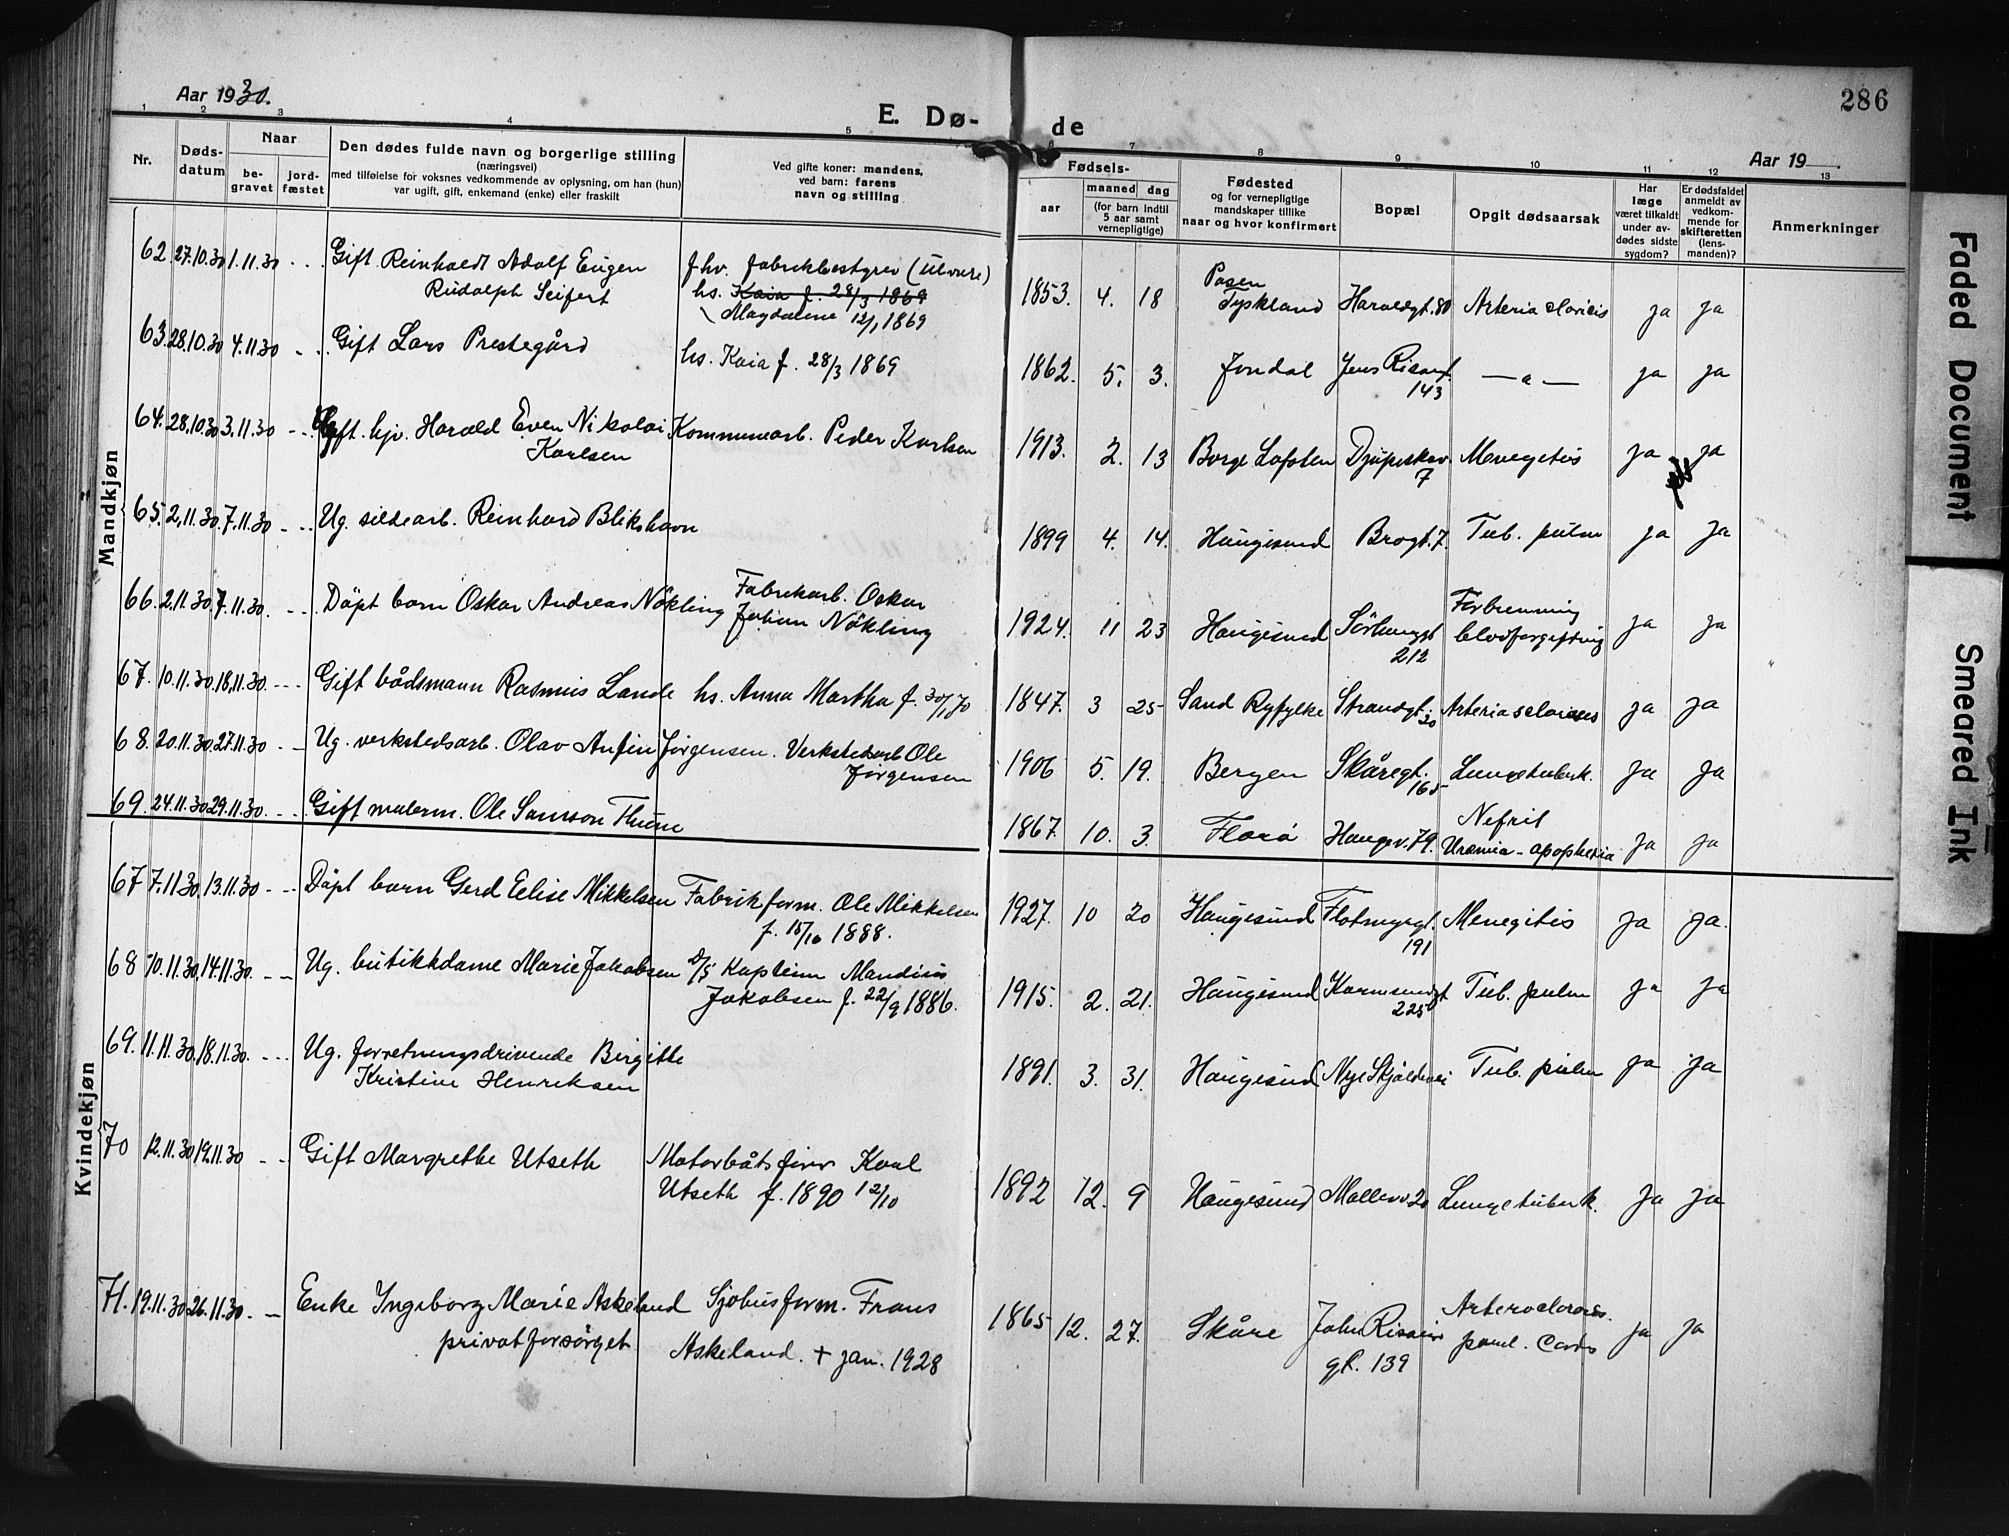 286
Aar 1930.
E. Døde
Aar 19
1 2 3 4 5 6 7 8 9 10 11 12 13
Nr.
Døds-
datum
Naar
be-
gravet
jord-
fæstet
Den dødes fulde navn og borgerlige stilling
(næringsvei)
med tilføielse for voksnes vedkommende av oplysning, om han (hun)
var ugift, gift, enkemand (enke) eller fraskilt
Ved gifte koner: mandens,
ved barn: farens
navn og stilling
Fødsels-
aar
maaned dag
(for barn indtil
5 aar samt
vernepligtige)
Fødested
og for vernepligtige
mandskaper tillike
naar og hvor konfirmert
Bopæl
Opgit dødsaarsak
Har
læge
været tilkaldt
under av-
dødes sidste
sygdom?
Er dødsfaldet
anmeldt av
vedkom-
mende for
skifteretten
(lens-
manden)?
Anmerkninger
Mandkjøn
62. 27.10.30 1.11.30 Gift Reinholdt Adolf Eugen
Rudolph Seifert
fhv. fabrikbestyrer
hs. Kaia f. 28/3 1869
Magdalene 12/1 1869
1853. 4. 18 Posen
Tyskland Haraldgt. 80 Arteria sclorieis ja ja
63. 28.10.30 4.11.30 Gift Lars Prestegård hs. Kaia f. 28/3 1869
1862. 5. 3. Jondal Jens Risangt.
143 — " — ja ja
64. 28.10.30 3.11.30 hjv. Harald Even Nikolai
Karlsen Kommunearb. Peder Karlsen
1913. 2. 13 Borge Lofoten Djupeskev.
7 Menegitis ja ja
65. 2.11.30. 7.11.30 Ug. sildearb. Reinhard Blikshavn
1899 4. 14. Haugesund Brogt. 7. Tub. pulm ja ja
66. 2.11.30. 7.11.30. Døpt barn Oskar Andreas Nökling Fabrikarb. Oskar
Johan Nökling
1924. 11 23 Haugesund Sørhauggt
212 Forbrenning
blodforgiftnig ja ja
67. 10.11.30 18.11.30. Gift bådsmann Rasmus Lande hs. Anna Martha f. 30/1 70
1847. 3 25 Sand Ryfylke Strandgt. 30 Arteria sclorieus ja ja
68. 20.11.30. 27.11.30 Ug. verkstedsarb. Olav Anfin Jörgensen. Verkstedsarb Ole
Jörgensen
1906 5. 19. Bergen Skåregt.
165 Lungetuberk. ja ja
69. 24.11.30 29.11.30. Gift malerm. Ole Samson Thune
1867. 10. 3. Florö Haugev. 79. Nefrit
Uræmia - apopleksia ja ja
Kvindekjøn
67 7.11.30. 13.11.30 Döpt barn Gerd Elise Mikkelsen Fabrikform. Ole Mikkelsen
f. 15/10 1888.
1927. 10 20 Haugesund Flotmyrgt.
191 Menegitis ja ja.
68 10.11.30. 14.11.30. Ug. butikkdame Marie Jakobsen D/S Kaptein Mandius
Jakobsen f. 22/9 1886.
1915. 2. 21. Haugesund Karmsundgt
225 Tub. pulm ja ja
69. 11.11.30. 18.11.30. Ug. forretningsdrivende Birgitte
Kristine Henriksen
1891. 3. 31. Haugesund Nye Skjoldevei Tub. pulm ja ja
70 12.11.30 19.11.30 Gift Margrethe Utseth Motorbåtsförer Karl
Utseth f. 1890 12/10
1892 12. 9 Haugesund Møllerv. 20 Lungetuberk. ja ja
71. 19.11.30 26.11.30. Enke Ingeborg Marie Askeland
privat forsörget Sjøhusform. Frans
Askeland. + jan. 1928
1865 12. 27. Skåre John Risøen
gt. 139 ja ja
Faded Document
Smeared Ink